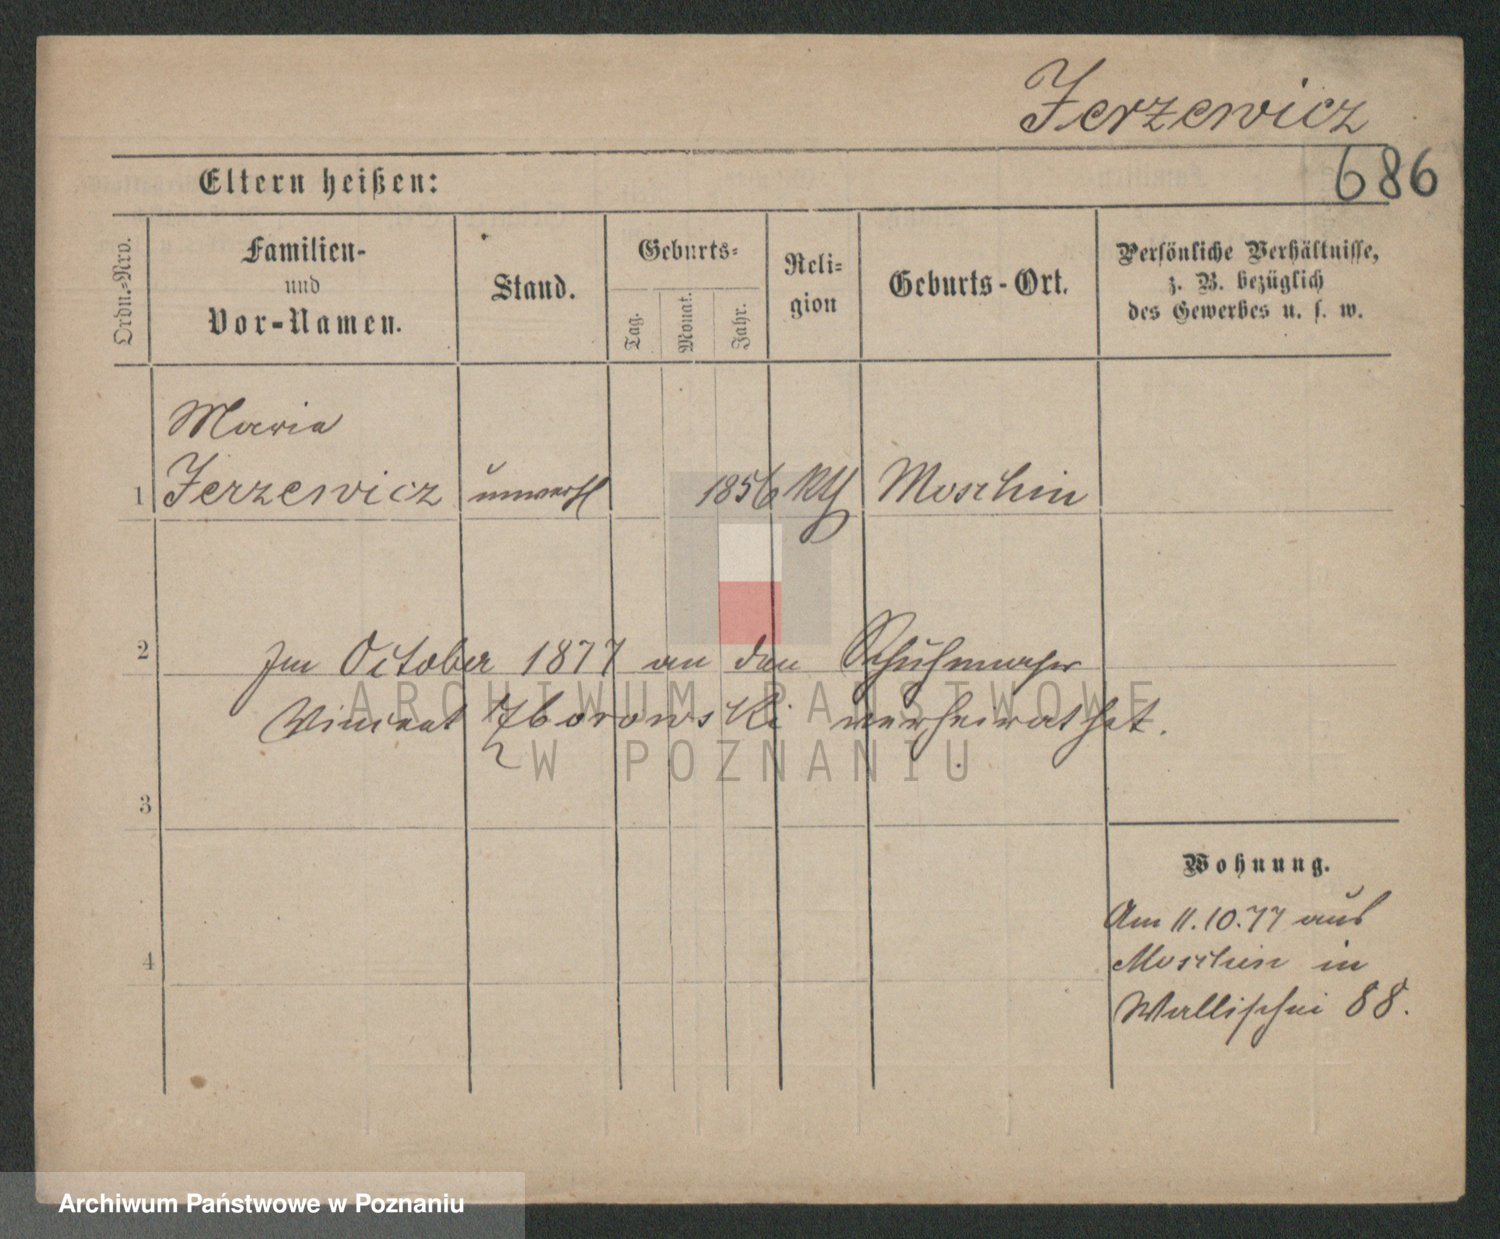 Jerzewicz
686
Eltern heißen:
Ordn.-Nro.
Familien-
und
Vor-Namen.
Stand.
Geburts-
Tag.
Monat.
Jahr.
Reli-
gion
Geburts-Ort.
Persönliche Verhältnisse,
z. B. bezüglich
des Gewerbes u. s. w.
Maria
1 Jerzewicz unverh 1856 kth Moschin
2
Im October 1877 an den Schuhmacher
Vincent Zborowski verheirathet.
ARCHIWUM PAŃSTWOWE
W POZNANIU
3
Wohnung.
Am 11.10.77 aus
4 Moschin in
Wallischei 88.
Archiwum Państwowe w Poznaniu